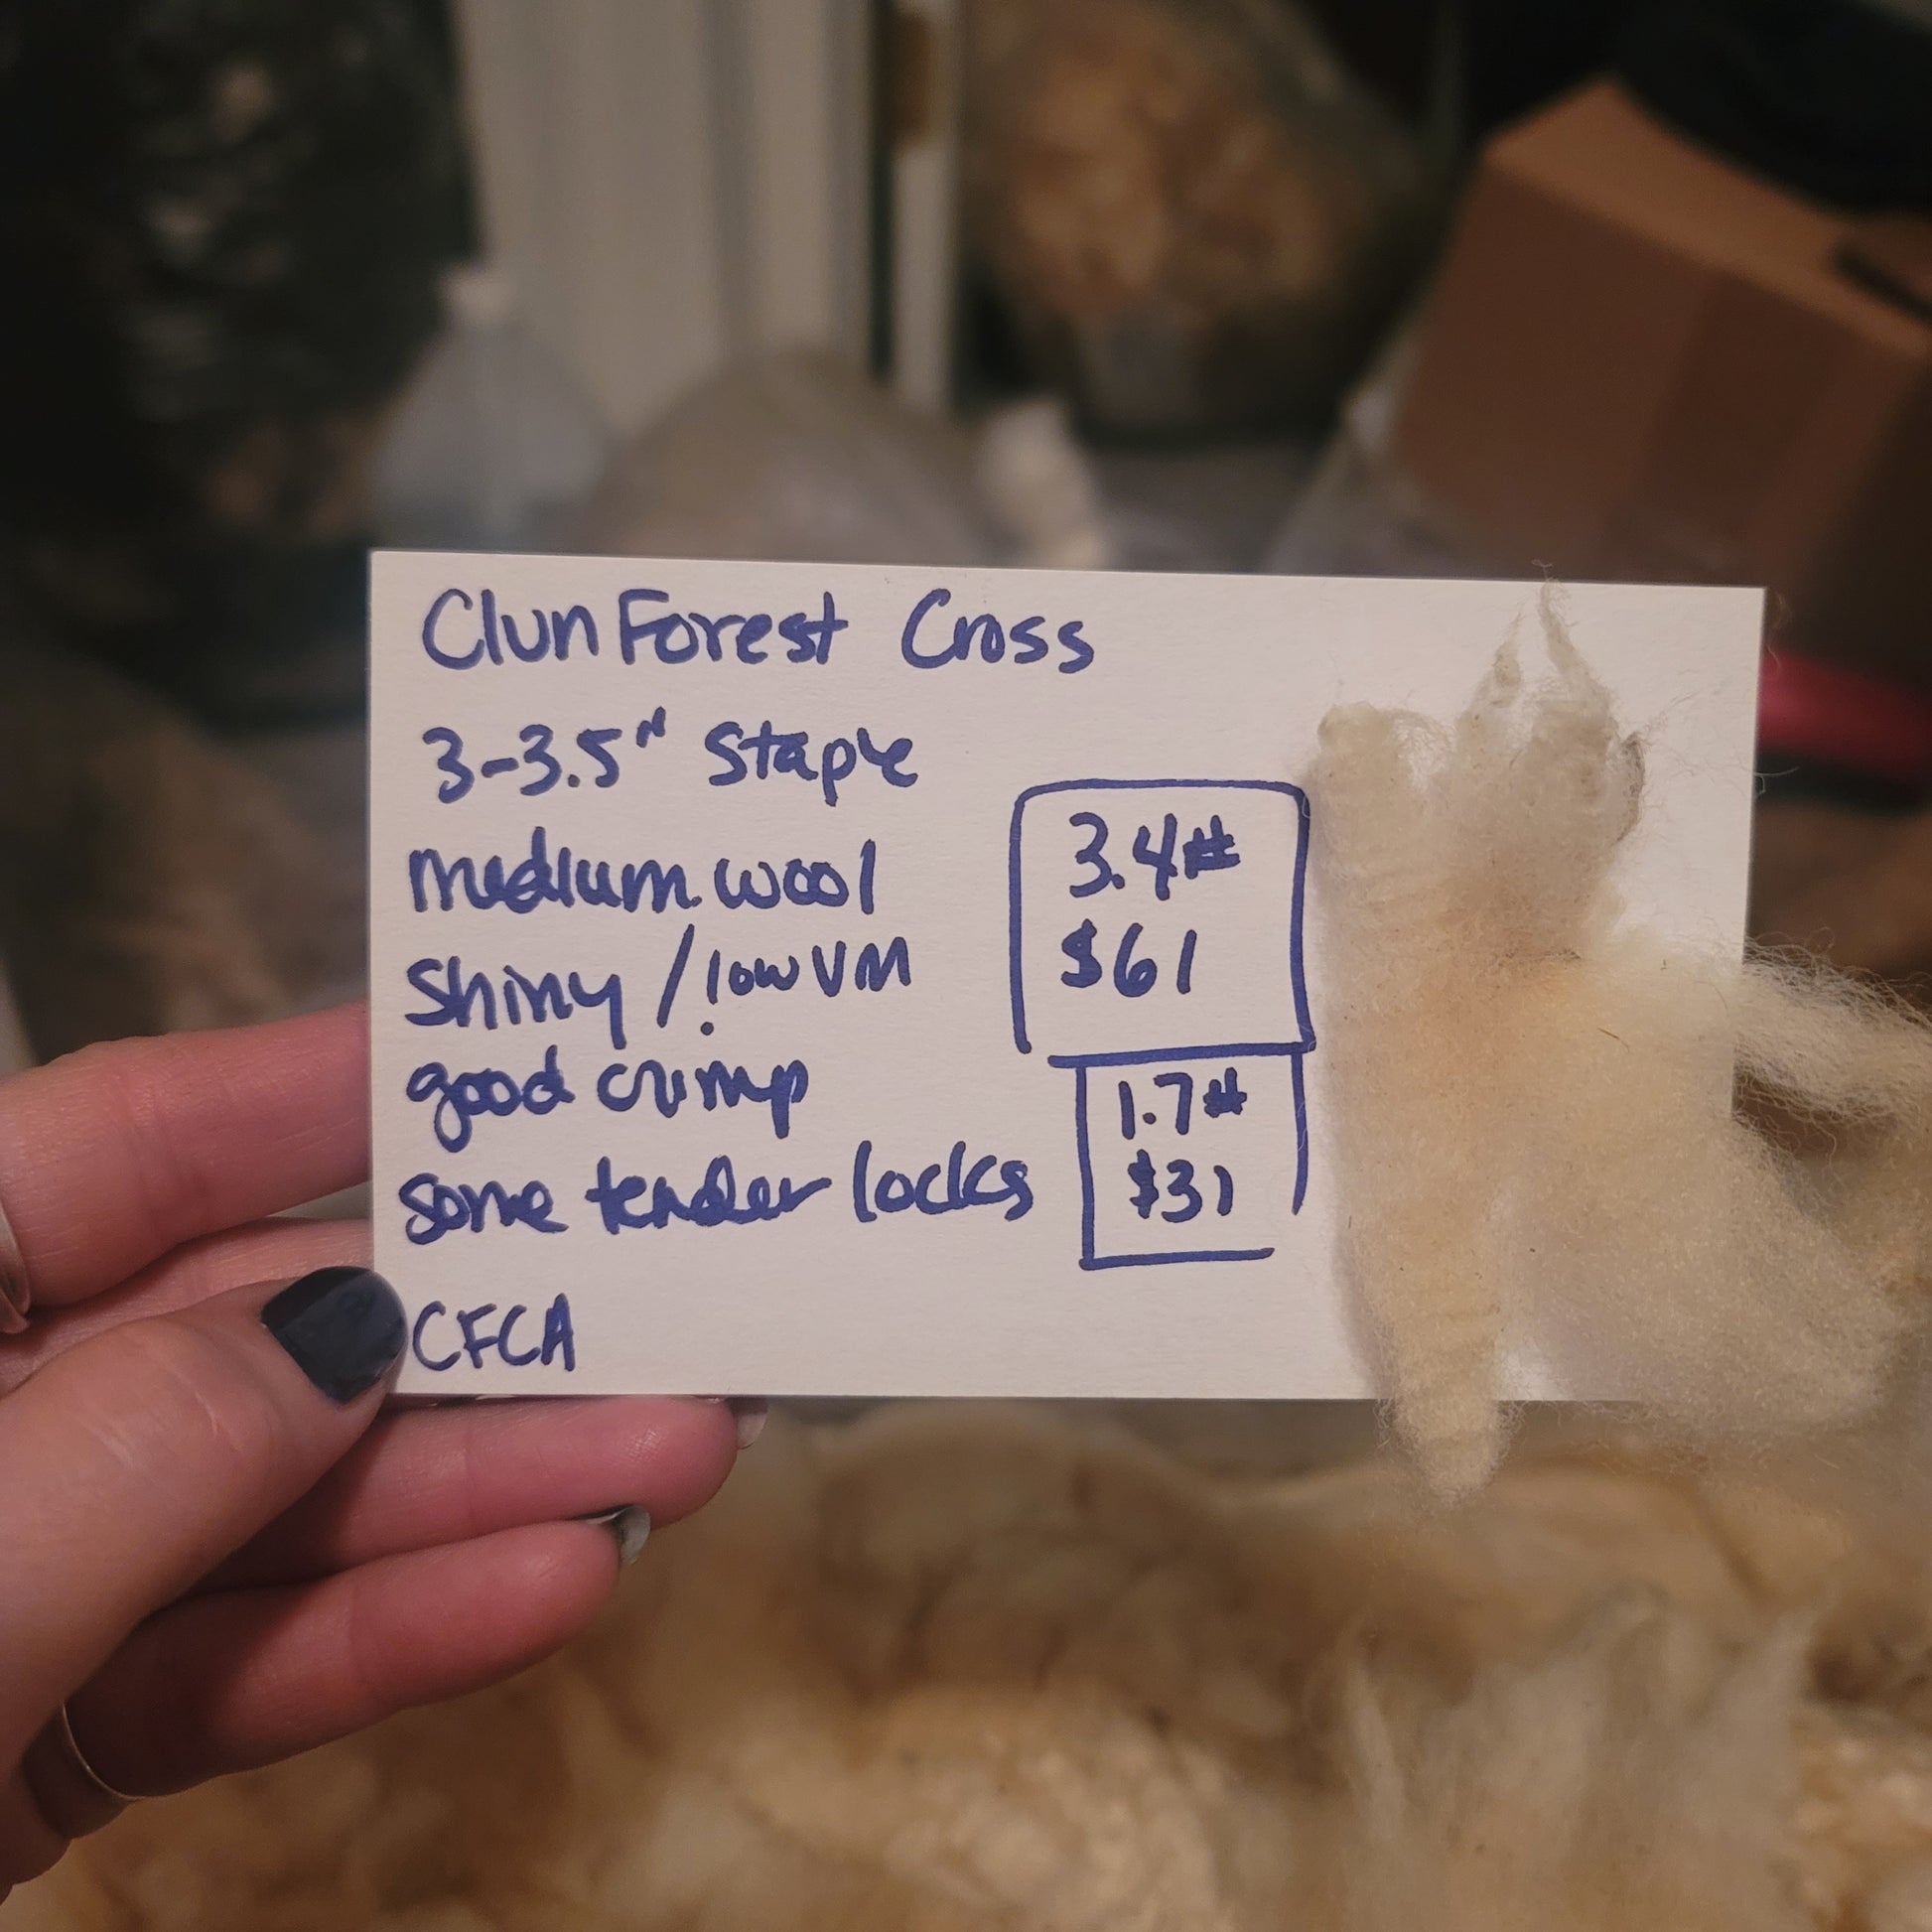 Clun Forest Cross
3-3.5" Staple
medium wool
Shiny / low VM
good crimp
some tender locks
CFCA
3.4#
$61
1.7#
$31